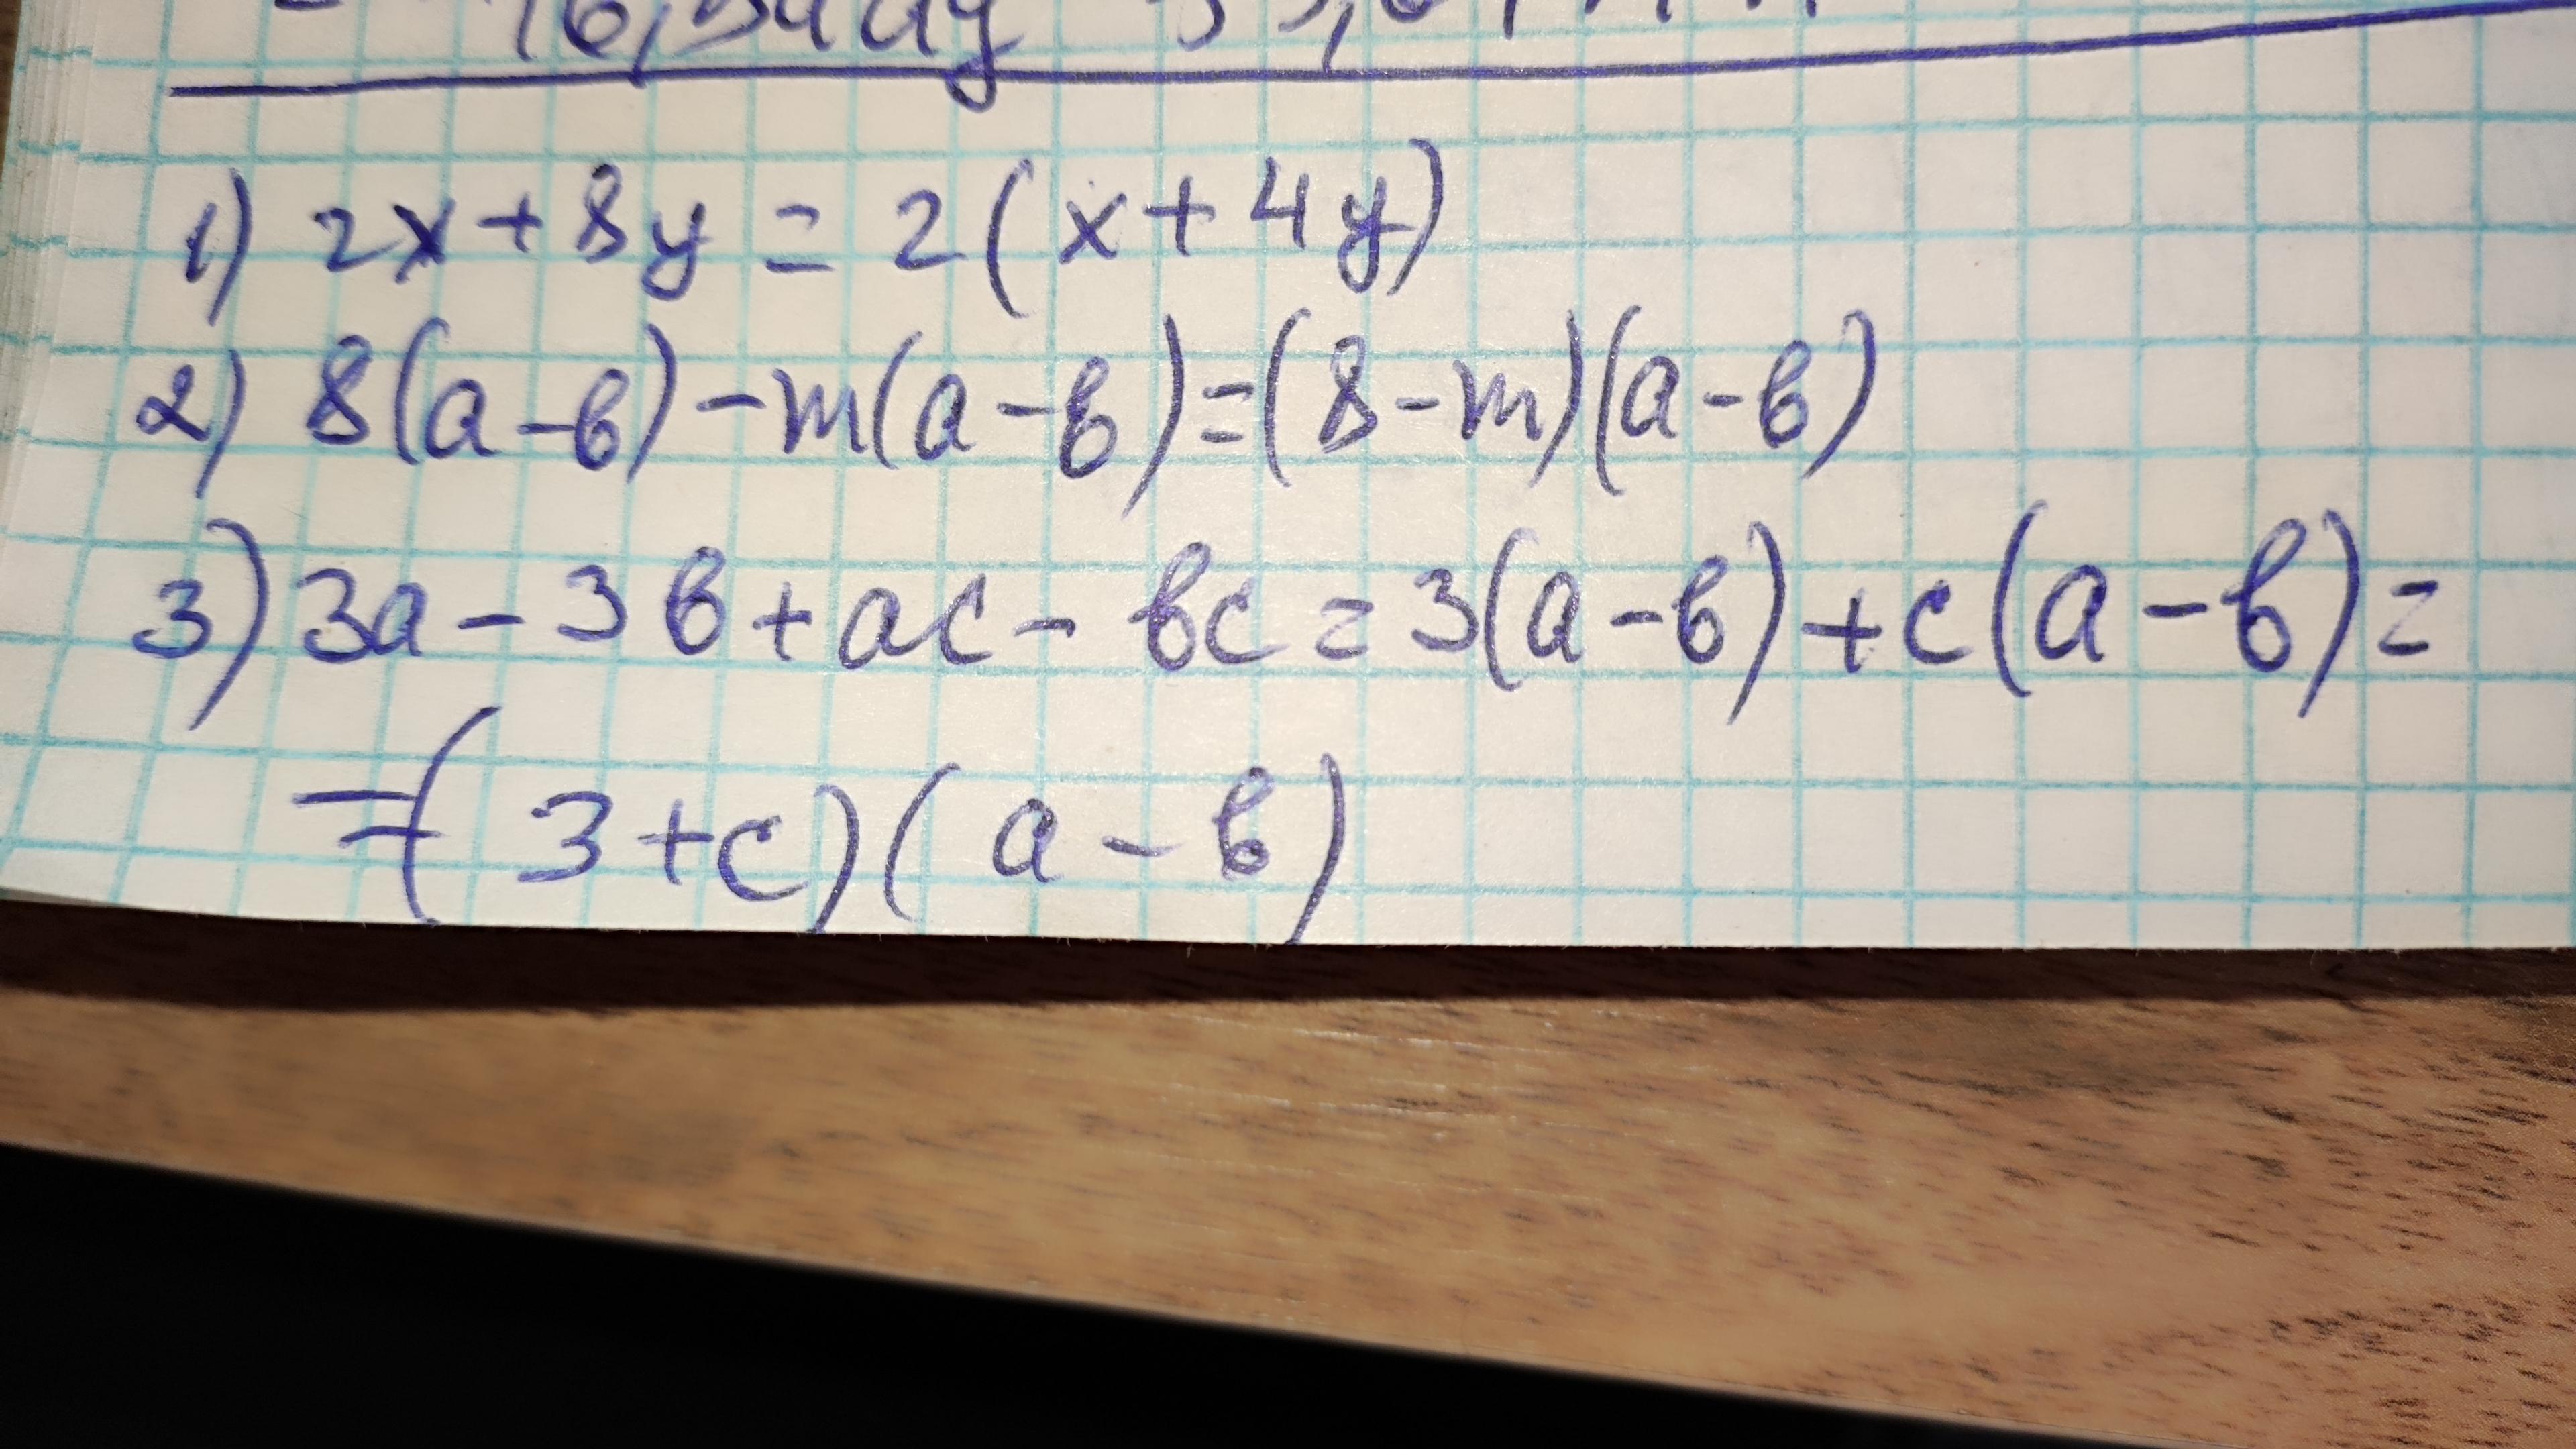 1) 2x + 8y = 2(x + 4y)
2) 8(a - b) - m(a - b) = (8 - m)(a - b)
3) 3a - 3b + ac - bc = 3(a - b) + c(a - b) =
= (3 + c)(a - b)